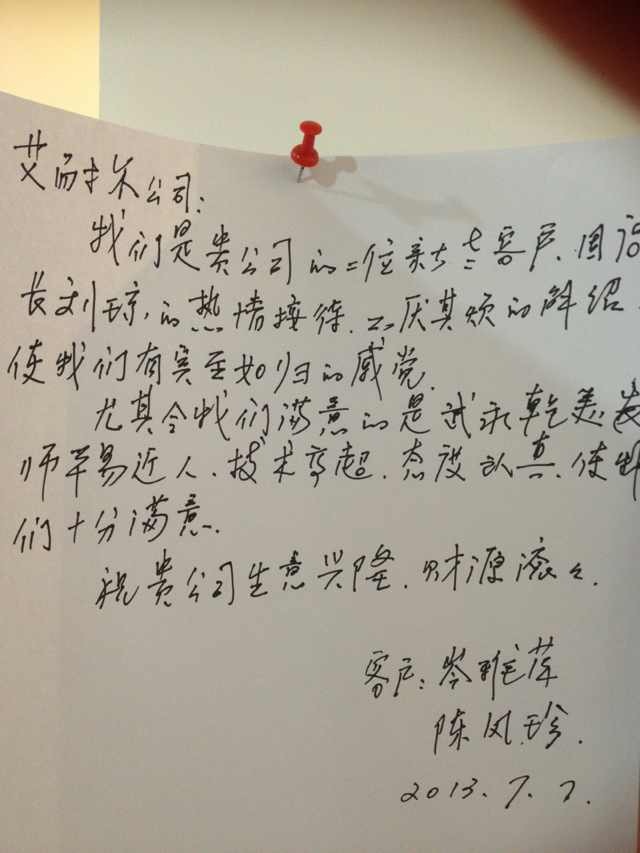 艾尚米公司:
我们是贵公司的二位新老客户.因店
长刘琼,的热情接待.不厌其烦的解绍.
使我们有宾至如归的感觉.
尤其令我们满意的是武永乾美发
师平易近人.技术高超.态度认真.使我
们十分满意.
祝贵公司生意兴隆.财源滚々.
客户:岑雅萍
陈凤珍.
2013.7.7.